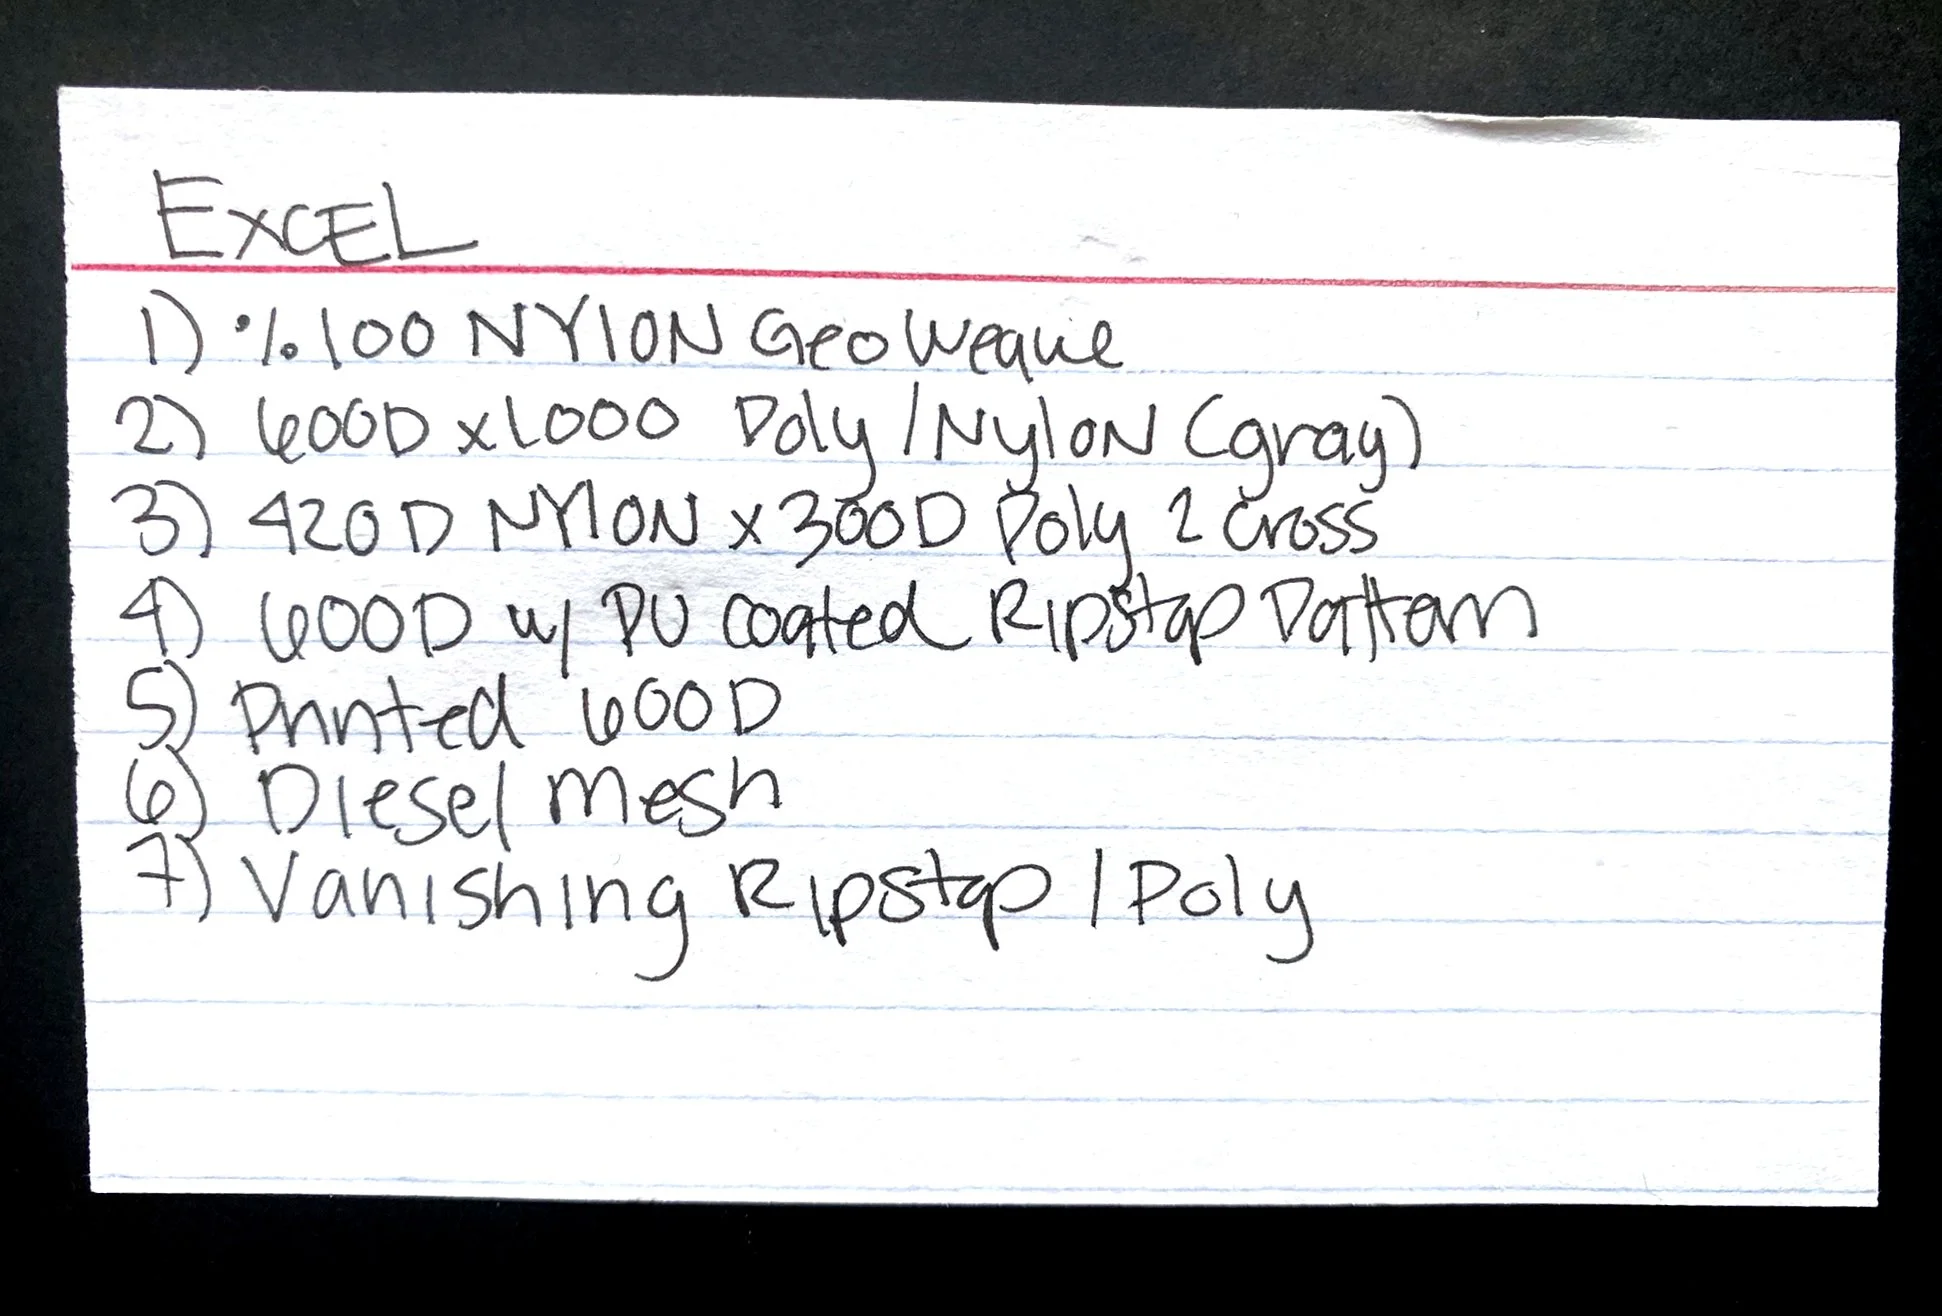 EXCEL
1) % 100 NYlON Geo Weaave
2) 600D x 1000 Poly / NylON (gray)
3) 420D NYlON x 300D Poly 2 Cross
4) 600D w/ PU coated RIpstop Pattern
5) Printed 600D
6) DIesel mesh
7) VanIshIng RIpstop / Poly